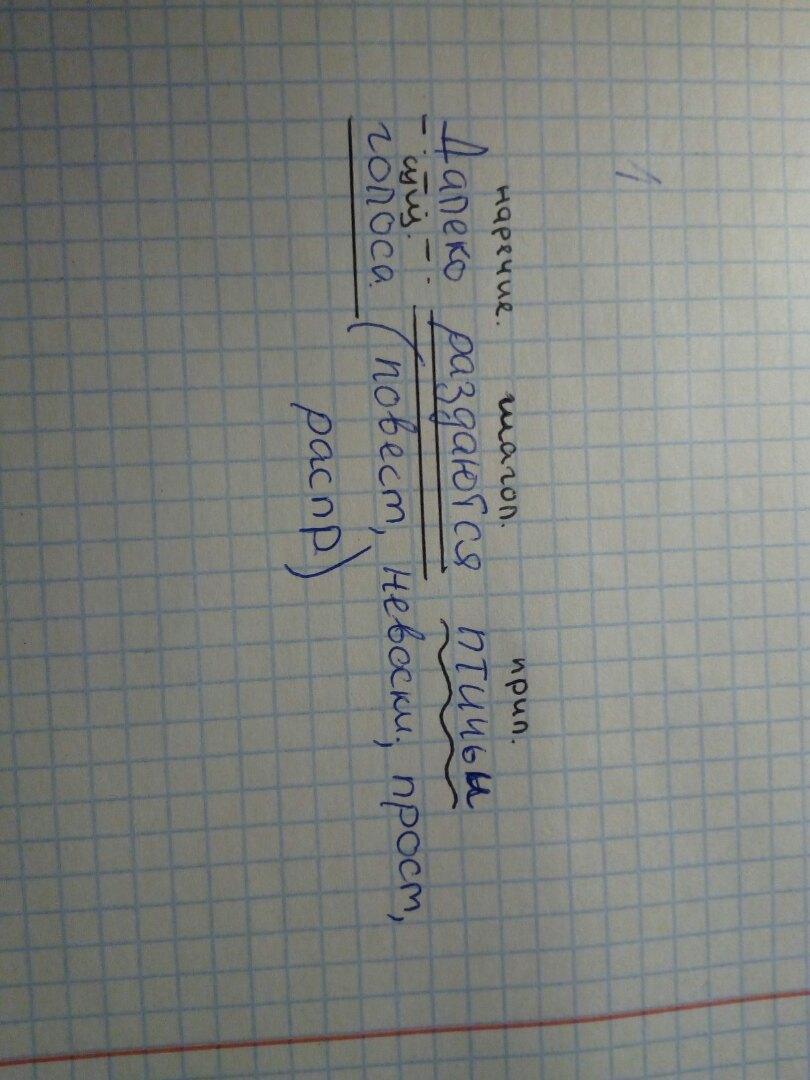 1
наречие. глагол. прил.
Далеко раздаются птичьи
сущ.
голоса. (повест, невоскл., прост,
распр)